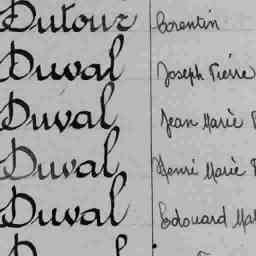 Dutour Corentin
Duval Joseph Pierre
Duval Jean Marie
Duval Henri Marie
Duval Edouard